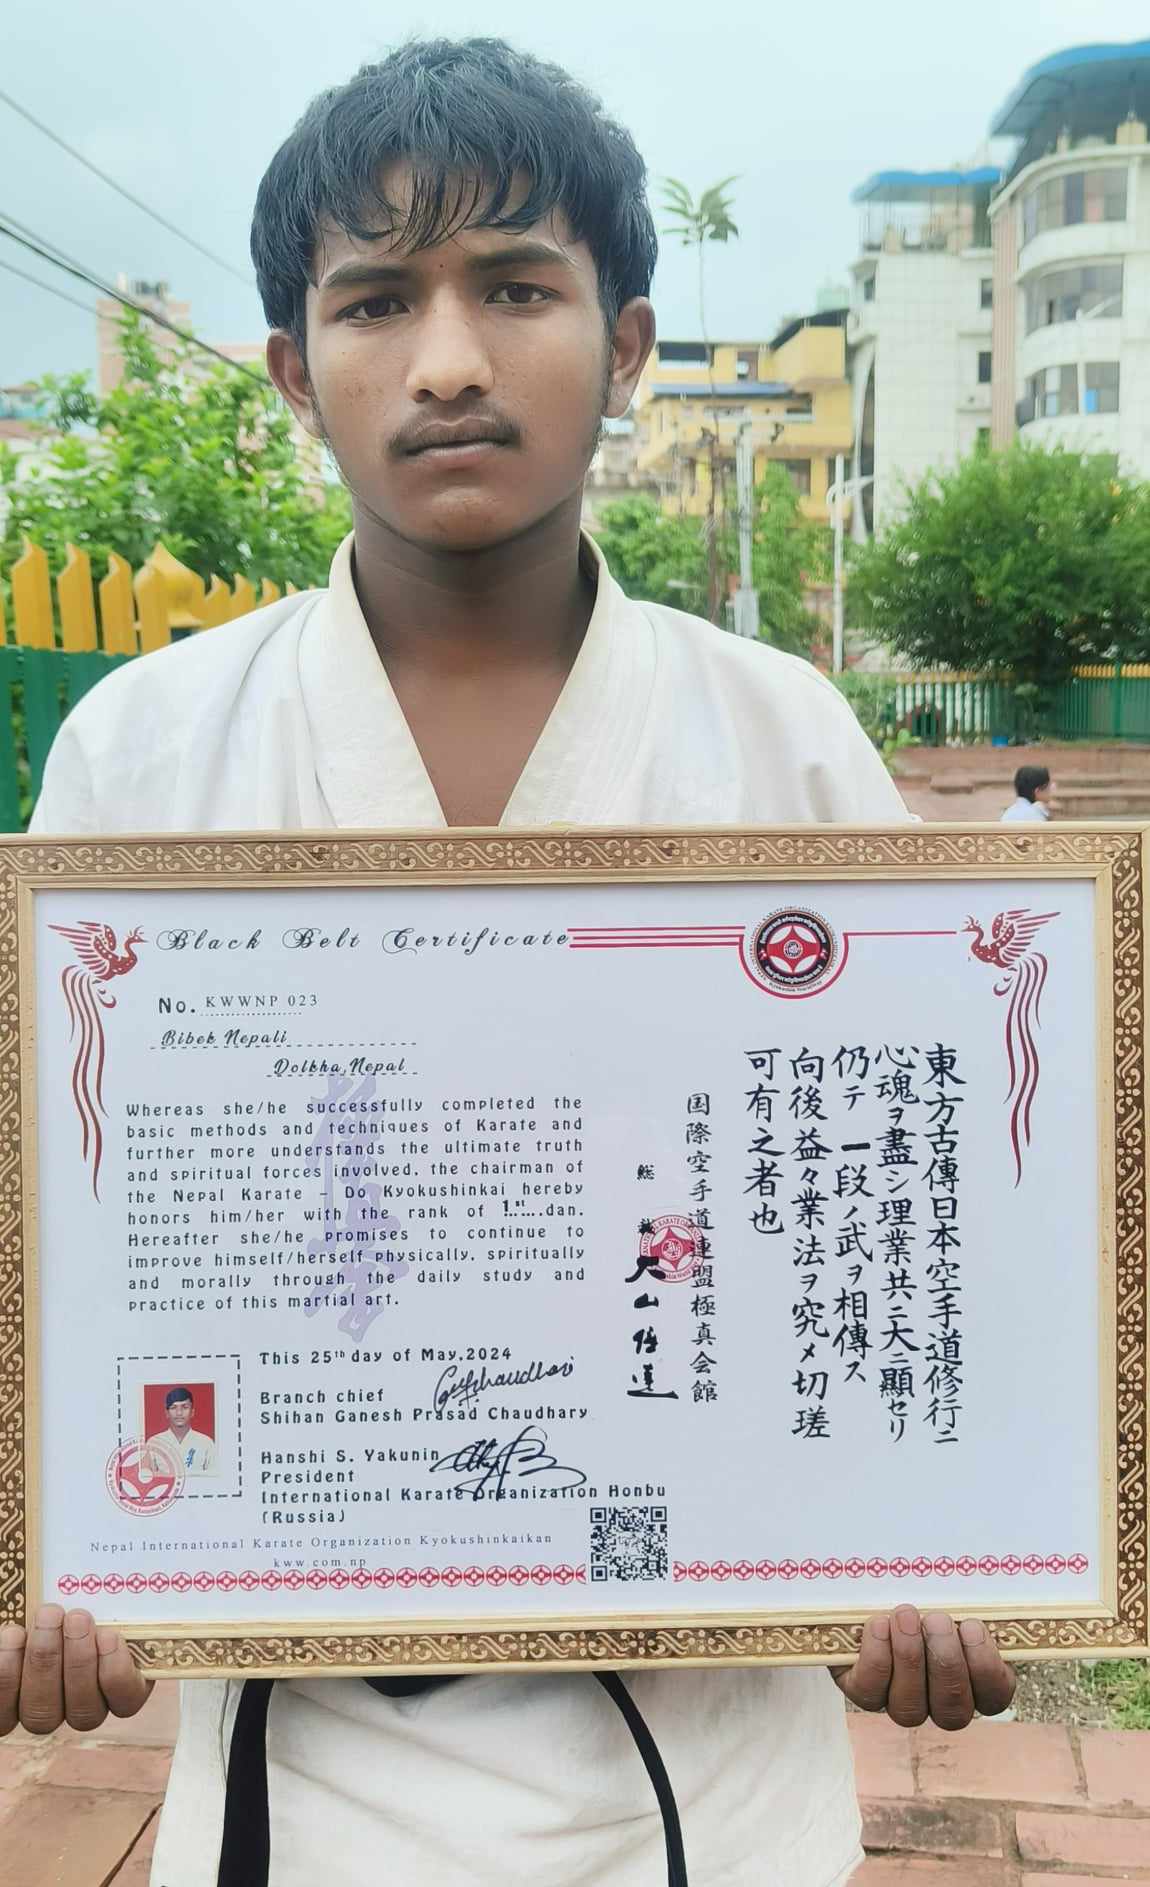 Black Belt Certificate
No. KWWNP 023
Bibek Nepali
Dolkha, Nepal
Whereas she/he successfully completed the
basic methods and techniques of Karate and
further more understands the ultimate truth
and spiritual forces involved. the chairman of
the Nepal Karate – Do Kyokushinkai hereby
honors him/her with the rank of 1st....dan.
Hereafter she/he promises to continue to
improve himself/herself physically. spiritually
and morally through the daily study and
practice of this martial art.
This 25th day of May,2024
Branch chief
Shihan Ganesh Prasad Chaudhary
Hanshi S. Yakunin
President
International Karate Organization Honbu
(Russia)
Nepal International Karate Organization Kyokushinkaikan
kww.com.np
東方古傳日本空手道修行ニ
心魂ヲ盡シ理業共ニ大ニ顯セリ
仍テ一段ノ武ヲ相傳ス
向後益々業法ヲ究メ切瑳
可有之者也
国際空手道連盟極真会館
総裁 大山倍達
極真会